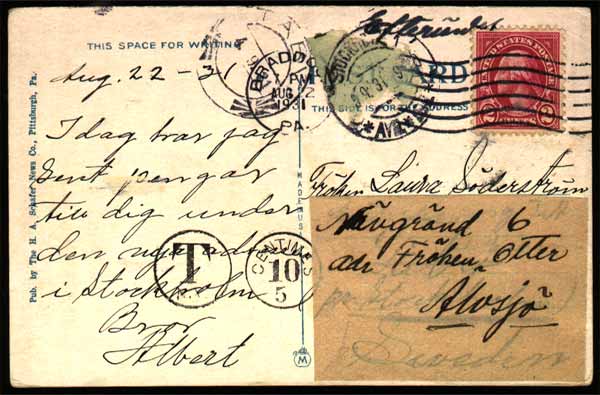 Eftersändes
THIS SPACE FOR WRITING
CARD
THIS SIDE IS FOR THE ADDRESS
BRADDOCK
PM
AUG 22
1931
PA.
STOCKHOLM
AVG
UNITED STATES POSTAGE
2 2
Aug. 22 - 31
I dag har jag
sent pengar
till dig under
den nya adress
i Stockholm
Bror
Albert
T
N.Y.
CENTIMES
10
5
Fröken Laura Söderström
Nävgränd 6
adr Fröken Etter
Alvsjö
Sweden
Pub. by The H. A. Schafer News Co., Pittsburgh, Pa.
MADE IN U.S.
M